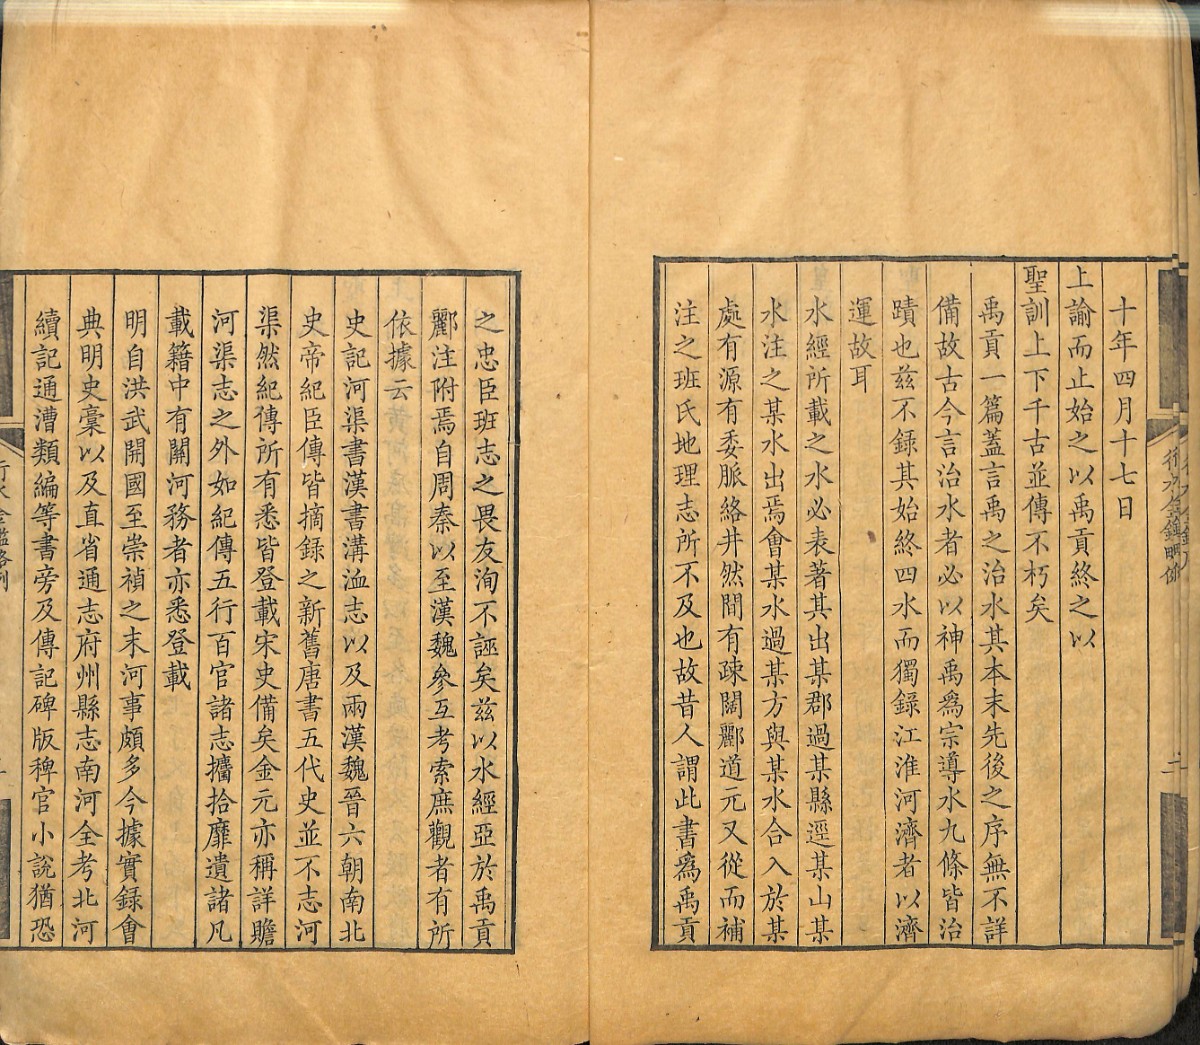 十年四月十七日
上諭而止始之以禹貢終之以
聖訓上下千古並傳不朽矣
禹貢一篇蓋言禹之治水其本末先後之序無不詳
備故古今言治水者必以神禹爲宗導水九條皆治
蹟也兹不錄其始終四水而獨錄江淮河濟者以濟
運故耳
水經所載之水必表著其出某郡過某縣逕某山某
水注之某水出焉會某水過某方與某水合入於某
處有源有委脈絡井然間有疎闊酈道元又從而補
注之班氏地理志所不及也故昔人謂此書爲禹貢
之忠臣班志之畏友洵不誣矣兹以水經亞於禹貢
酈注附焉自周秦以至漢魏參互考索庶觀者有所
依據云
史記河渠書漢書溝洫志以及兩漢魏晉六朝南北
史帝紀臣傳皆摘錄之新舊唐書五代史並不志河
渠然紀傳所有悉皆登載宋史備矣金元亦稱詳贍
河渠志之外如紀傳五行百官諸志攟拾靡遺諸凡
載籍中有關河務者亦悉登載
明自洪武開國至崇禎之末河事頗多今據實錄會
典明史稾以及直省通志府州縣志南河全考北河
續記通漕類編等書旁及傳記碑版稗官小說猶恐
行水金鑑略例
二